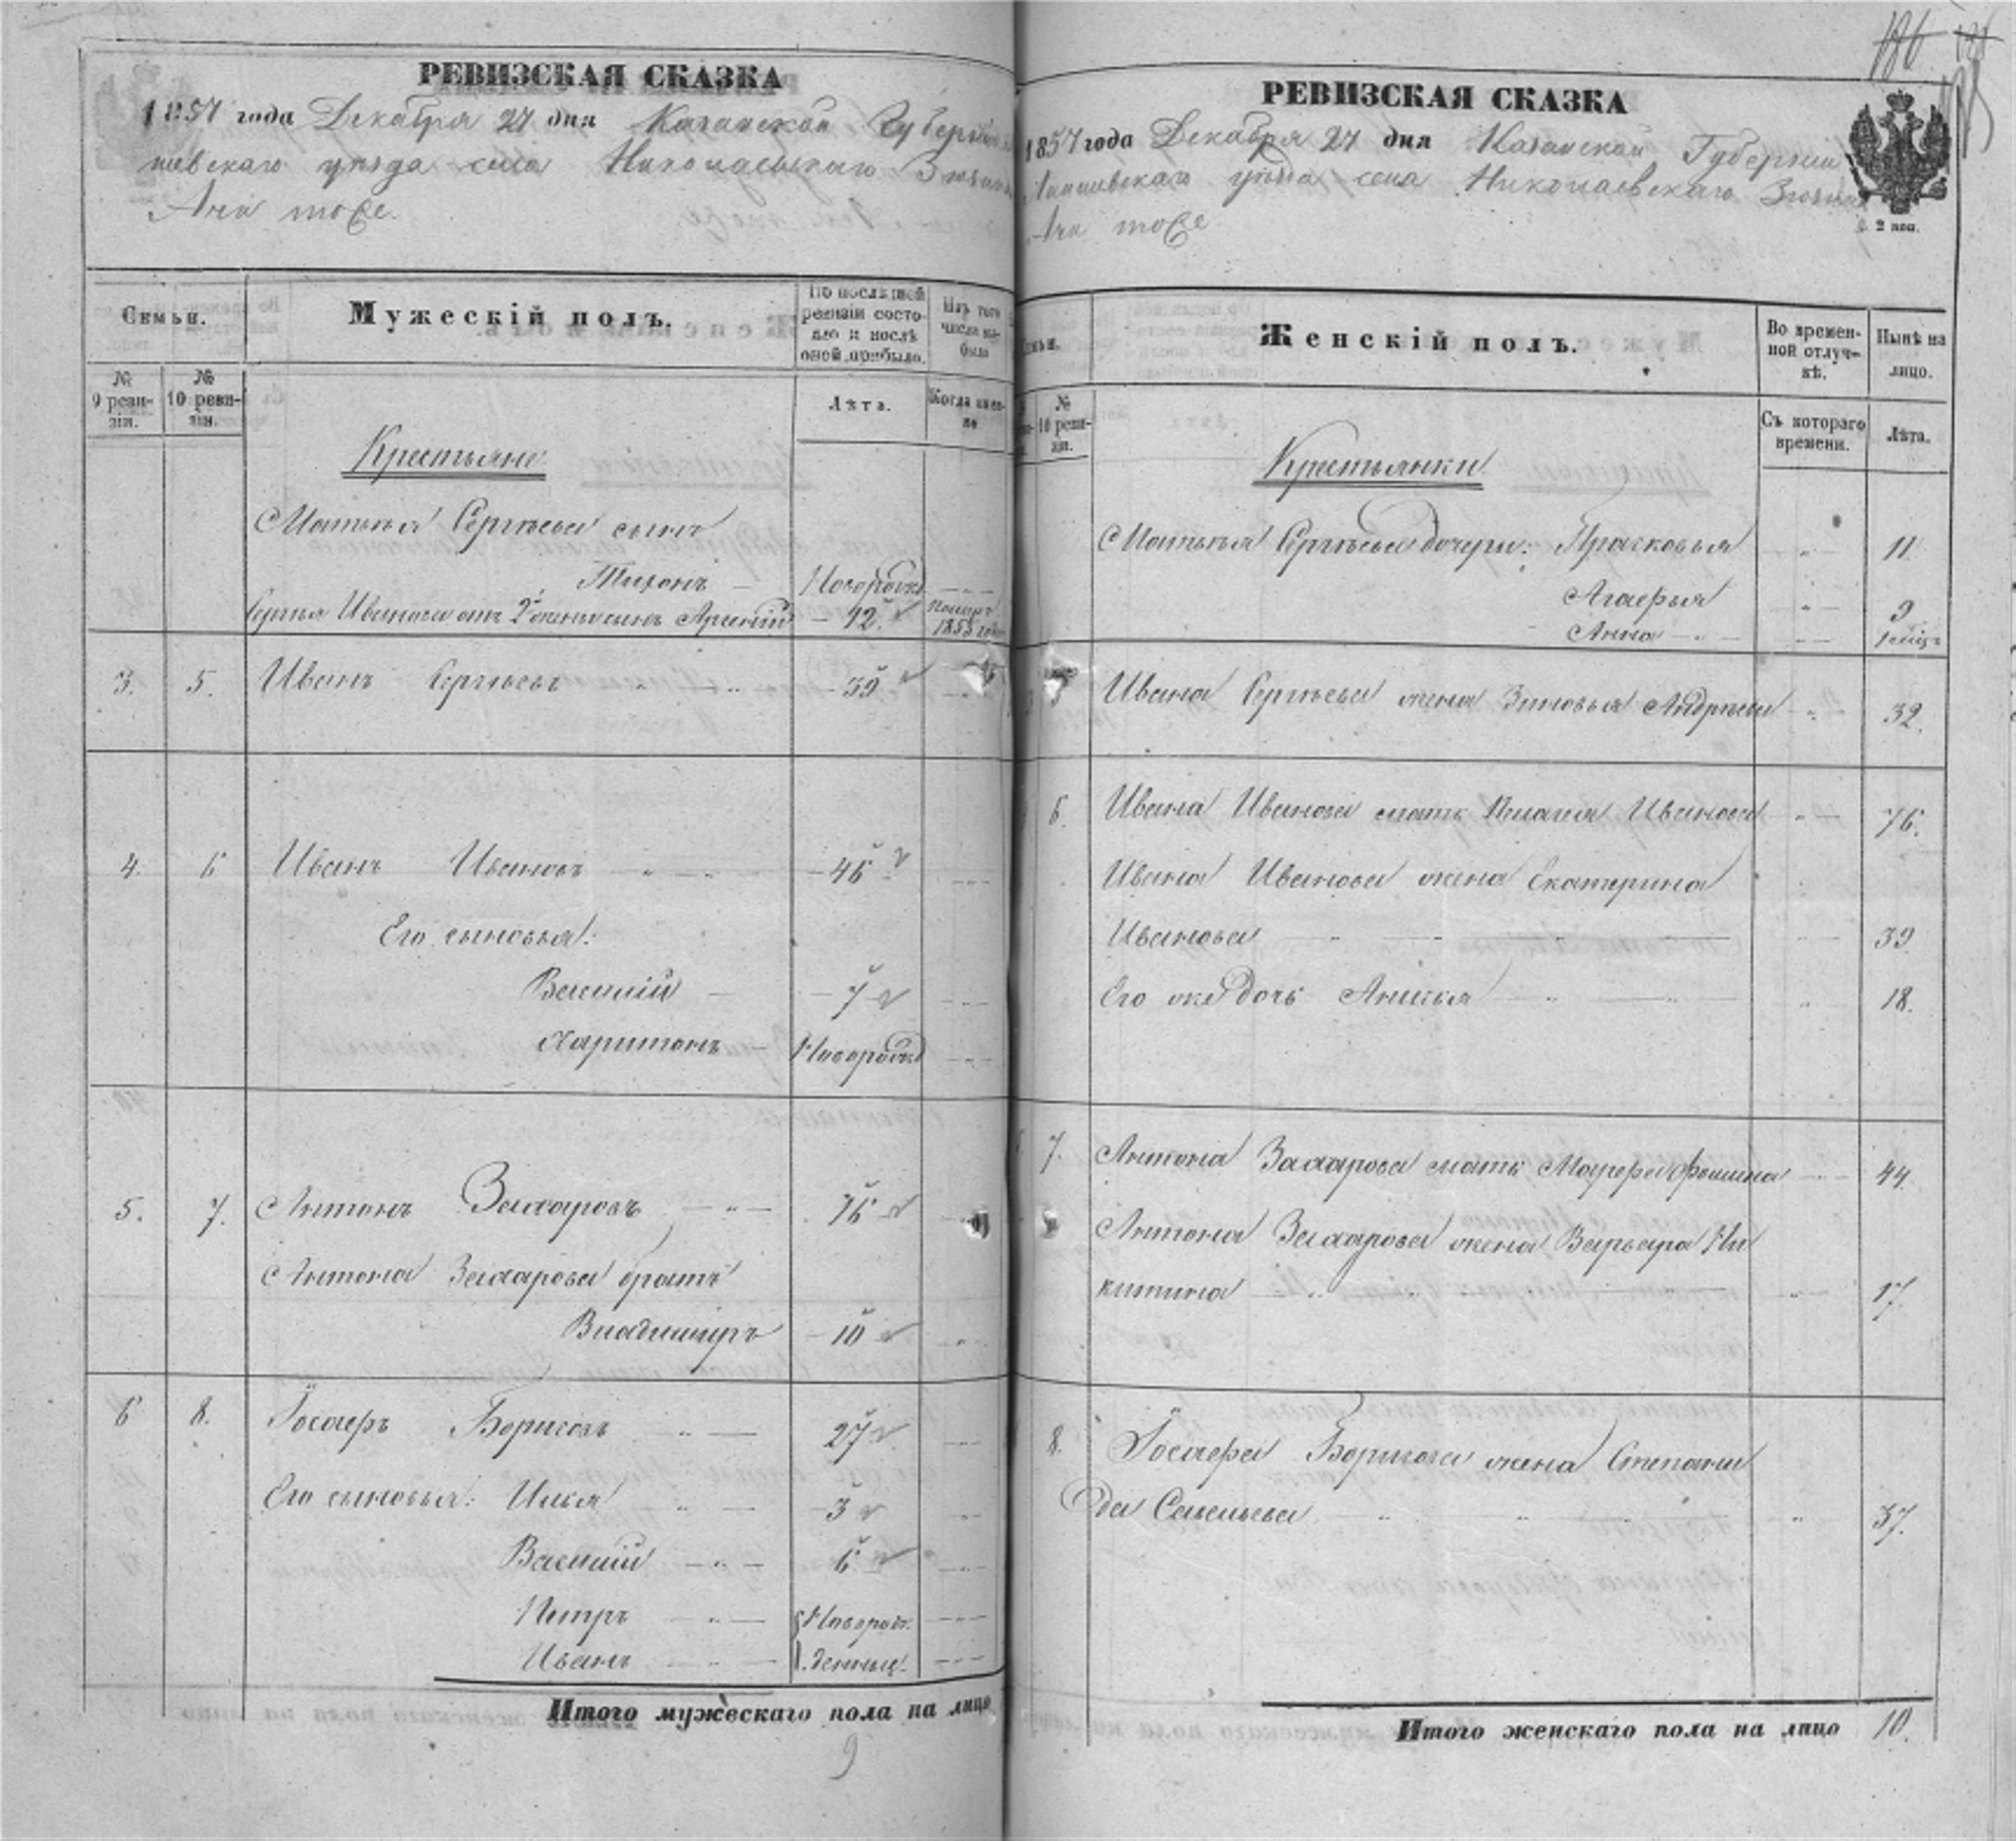 РЕВИЗСКАЯ СКАЗКА
1857 года Декабря 27 дня Казанской Губерніи
шевскаго уѣзда села Николаевскаго
тоже.
Семьи.
Мужескій полъ.
По послѣдней ревизіи состояло и послѣ оной прибыло.
Изъ того числа выбыло
№ 9 ревизіи.
№ 10 ревизіи.
Лѣта.
Когда именно.
Крестьяне
Матвѣя Сергѣева сынъ
Тихонъ — Новорожд
Сергѣя Иванова отъ 2й жены сынъ Арсеній — 12. 1853 года
3. 5. Иванъ Сергѣевъ " — " — 39
4. 6 Иванъ Ивановъ — " — 46
Его сыновья:
Василій — 7
Харитонъ — Новорожд
5. 7. Антонъ Захаровъ — " — 16
Антона Захарова братъ
Владимиръ — 10
6 8. Іосифъ Борисовъ " — 27
Его сыновья: Илья " — 3
Василій — " — 6
Петръ — " — Новорож
Иванъ — " — денные.
Итого мужескаго пола на лицо
9
186
РЕВИЗСКАЯ СКАЗКА
1857 года Декабря 27 дня Казанской Губерніи
Лаишевскаго уѣзда села Николаевскаго
тоже
2 коп.
Женскій полъ.
Во временной отлучкѣ.
Нынѣ на лицо.
№ 10 ревизіи.
Съ котораго времени.
Лѣта.
Крестьянки
Матвѣя Сергѣева дочери: Прасковья — " — 11
Агафья — " — 9
Анна — " — —
5 Ивана Сергѣева жена Зиновья Андрѣева — " — 32.
6. Ивана Иванова мать Пелагія Иванова — " — 76.
Ивана Иванова жена Екатерина
Иванова — " — 39
Его же дочь Анисья — " — 18.
7. Антона Захарова мать Марфа Фомина — " — 44.
Антона Захарова жена Варвара Ни
китина — " — 17.
8. Іосифа Борисова жена Степани
да Савельева — " — 37.
Итого женскаго пола на лицо 10.